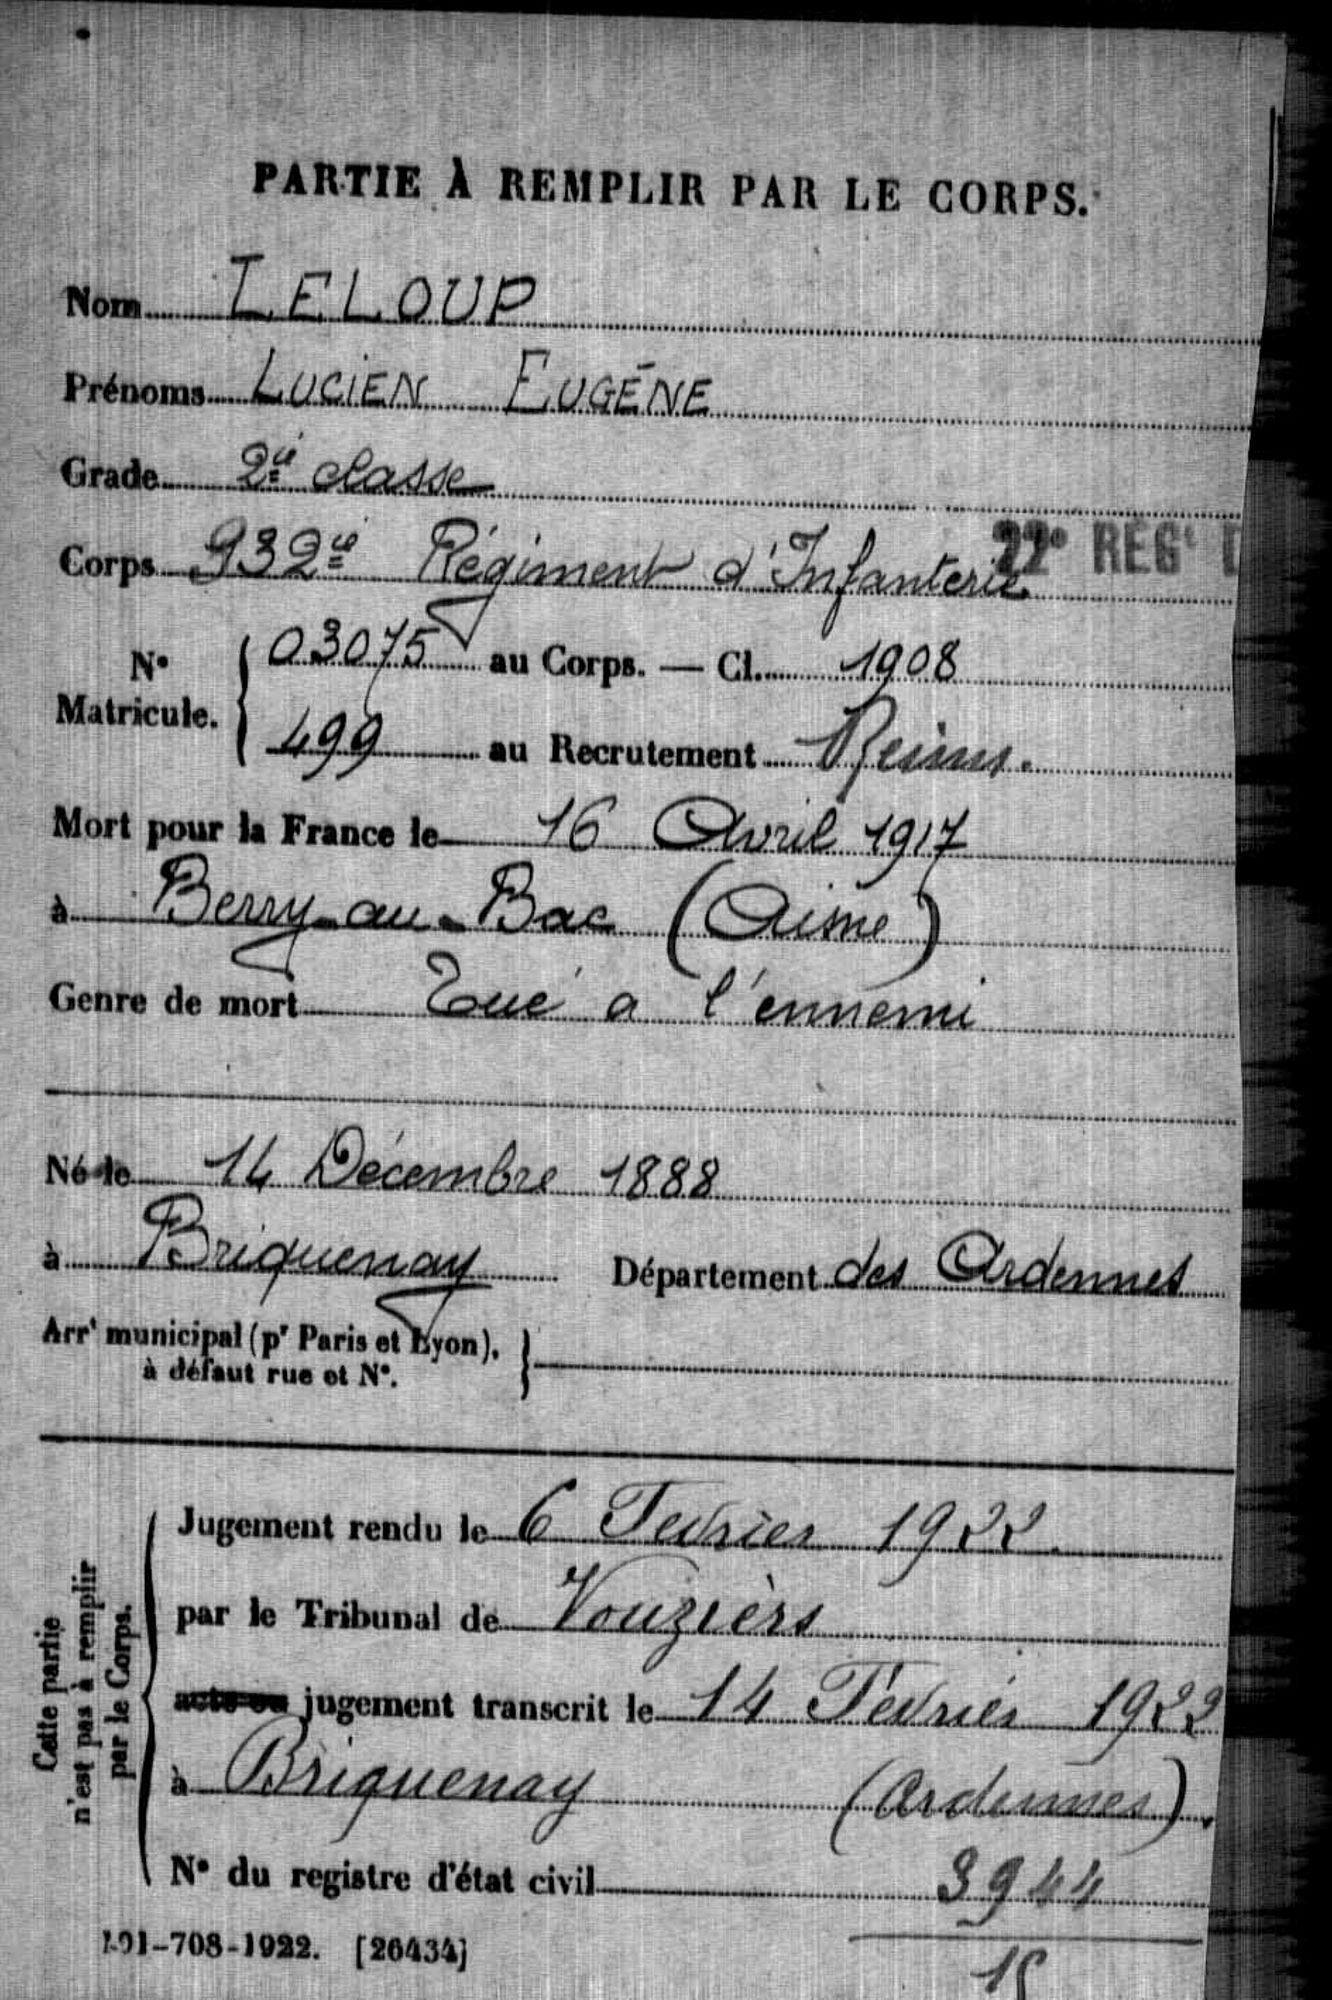 PARTIE À REMPLIR PAR LE CORPS.
Nom LELOUP
Prénoms LUCIEN EUGÉNE
Grade 2è classe
Corps 332è Régiment d'Infanterie
22e RÉGt D
No Matricule. 03075 au Corps. — Cl. 1908
499 au Recrutement Reims.
Mort pour la France le 16 Avril 1917
à Berry-au-Bac (Aisne)
Genre de mort Tué a l'ennemi
Né le 14 Décembre 1888
à Briquenay Département des Ardennes
Arrt municipal (pr Paris et Lyon),
à défaut rue et No.
Cette partie
n'est pas à remplir
par le Corps.
Jugement rendu le 6 Fevrier 1922.
par le Tribunal de Vouzièrs
acte ou jugement transcrit le 14 Février 1922
à Briquenay (Ardennes).
No du registre d'état civil 3944
15
101-708-1922. [26434]